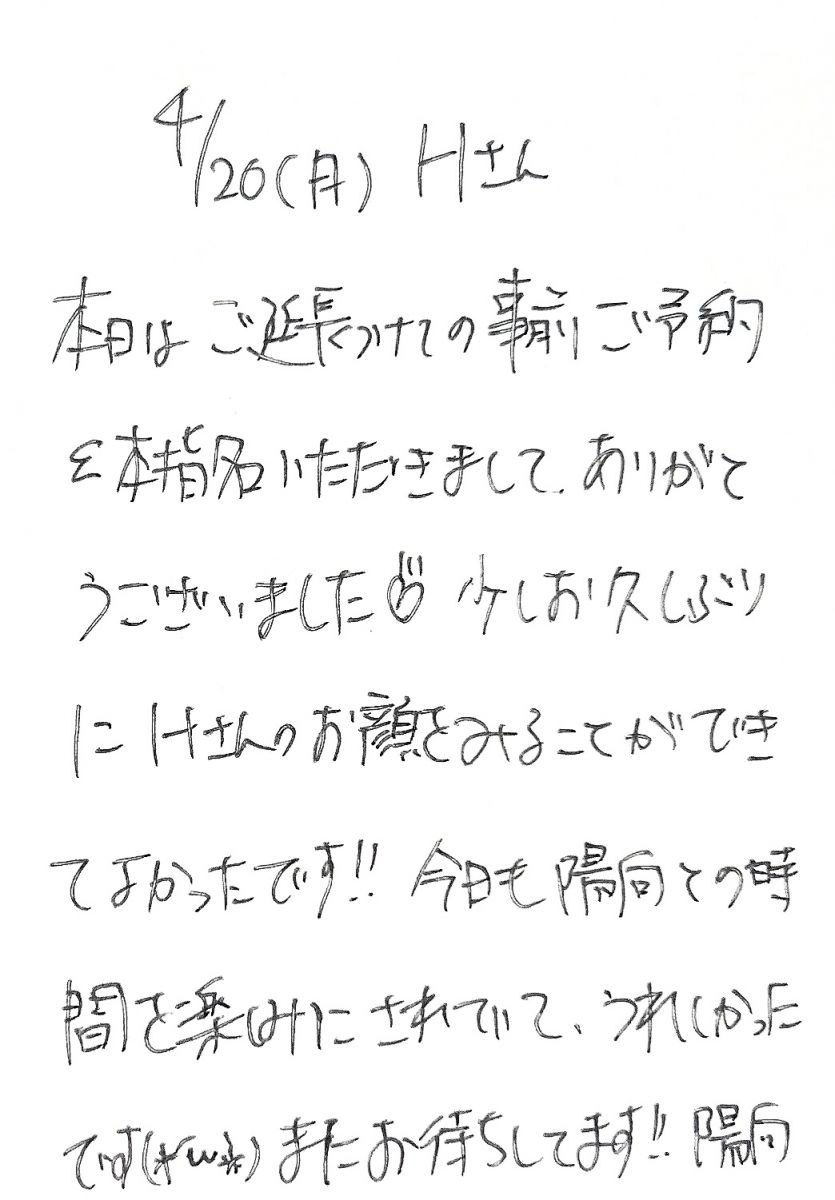 4/20(月) Hさん
本日は ご延長つけての事前ご予約
&本指名いただきまして、ありがと
うございました 少しお久しぶり
に Hさんのお顔をみることができ
てよかったです!! 今日も陽向との時
間を楽しみにされていて、うれしかった
です(*´ω`*) またお待ちしてます!! 陽向